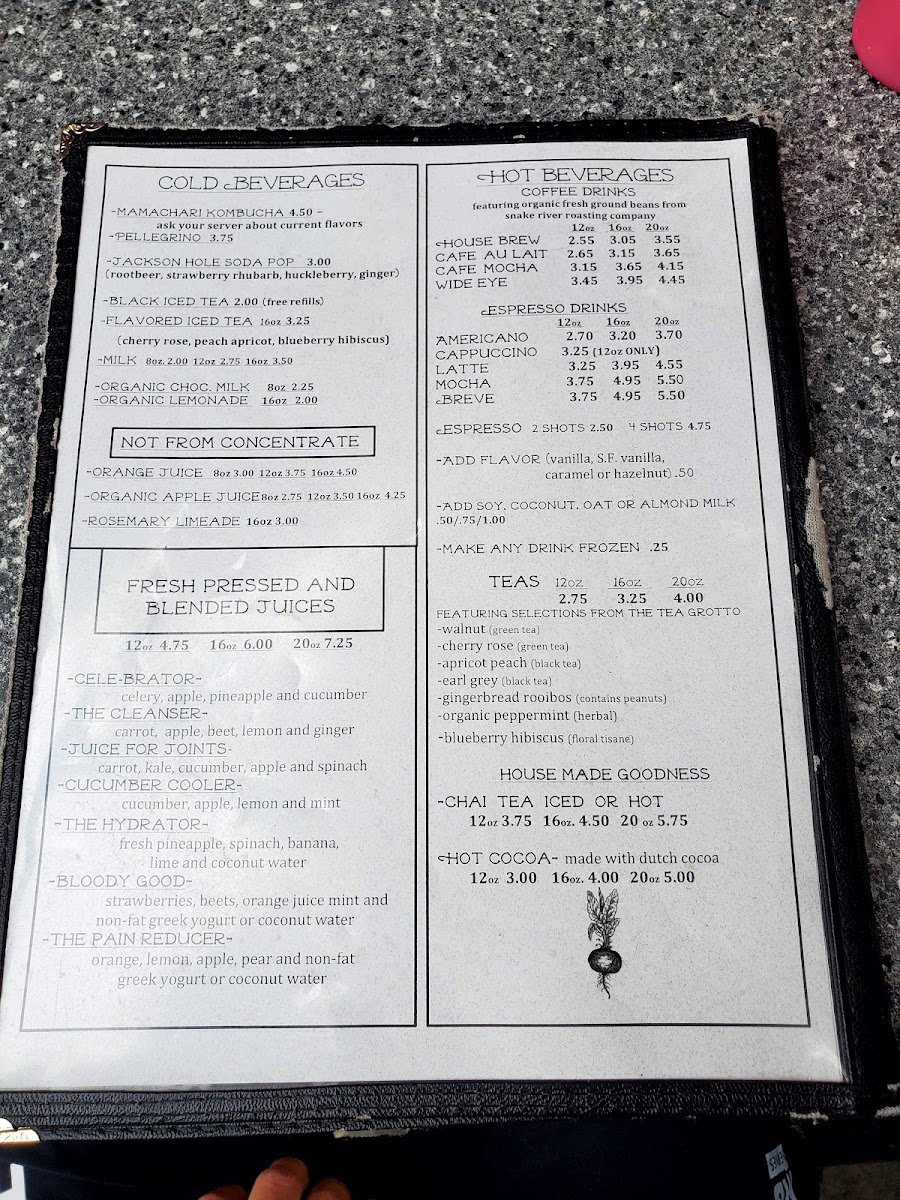 COLD BEVERAGES
-MAMACHARI KOMBUCHA 4.50 -
ask your server about current flavors
-PELLEGRINO 3.75
-JACKSON HOLE SODA POP 3.00
(rootbeer, strawberry rhubarb, huckleberry, ginger)
-BLACK ICED TEA 2.00 (free refills)
-FLAVORED ICED TEA 16oz 3.25
(cherry rose, peach apricot, blueberry hibiscus)
-MILK 8oz. 2.00 12oz 2.75 16oz 3.50
-ORGANIC CHOC. MILK 8oz 2.25
-ORGANIC LEMONADE 16oz 2.00
NOT FROM CONCENTRATE
-ORANGE JUICE 8oz 3.00 12oz 3.75 16oz 4.50
-ORGANIC APPLE JUICE 8oz 2.75 12oz 3.50 16oz 4.25
-ROSEMARY LIMEADE 16oz 3.00
FRESH PRESSED AND
BLENDED JUICES
12oz 4.75 16oz 6.00 20oz 7.25
-CELE-BRATOR-
celery, apple, pineapple and cucumber
-THE CLEANSER-
carrot, apple, beet, lemon and ginger
-JUICE FOR JOINTS-
carrot, kale, cucumber, apple and spinach
-CUCUMBER COOLER-
cucumber, apple, lemon and mint
-THE HYDRATOR-
fresh pineapple, spinach, banana,
lime and coconut water
-BLOODY GOOD-
strawberries, beets, orange juice mint and
non-fat greek yogurt or coconut water
-THE PAIN REDUCER-
orange, lemon, apple, pear and non-fat
greek yogurt or coconut water
HOT BEVERAGES
COFFEE DRINKS
featuring organic fresh ground beans from
snake river roasting company
12oz 16oz 20oz
HOUSE BREW 2.55 3.05 3.55
CAFE AU LAIT 2.65 3.15 3.65
CAFE MOCHA 3.15 3.65 4.15
WIDE EYE 3.45 3.95 4.45
ESPRESSO DRINKS
12oz 16oz 20oz
AMERICANO 2.70 3.20 3.70
CAPPUCCINO 3.25 (12oz ONLY)
LATTE 3.25 3.95 4.55
MOCHA 3.75 4.95 5.50
BREVE 3.75 4.95 5.50
ESPRESSO 2 SHOTS 2.50 4 SHOTS 4.75
-ADD FLAVOR (vanilla, S.F. vanilla,
caramel or hazelnut) .50
-ADD SOY, COCONUT, OAT OR ALMOND MILK
.50/.75/1.00
-MAKE ANY DRINK FROZEN .25
TEAS 12oz 16oz 20oz
2.75 3.25 4.00
FEATURING SELECTIONS FROM THE TEA GROTTO
-walnut (green tea)
-cherry rose (green tea)
-apricot peach (black tea)
-earl grey (black tea)
-gingerbread rooibos (contains peanuts)
-organic peppermint (herbal)
-blueberry hibiscus (floral tisane)
HOUSE MADE GOODNESS
-CHAI TEA ICED OR HOT
12oz 3.75 16oz. 4.50 20 oz 5.75
HOT COCOA- made with dutch cocoa
12oz 3.00 16oz. 4.00 20oz 5.00